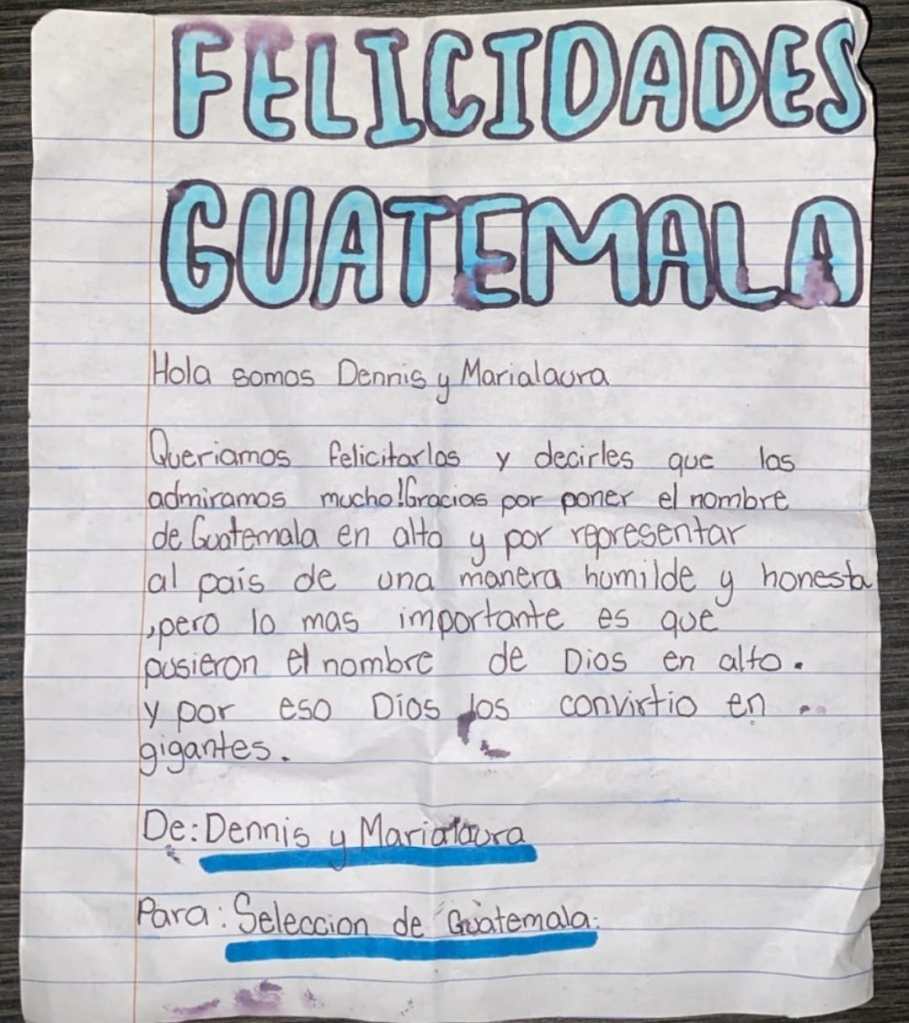 FELICIDADES
GUATEMALA
Hola somos Dennis y Marialaura
Queriamos felicitarlos y decirles que los
admiramos mucho!Gracias por poner el nombre
de Guatemala en alto y por representar
al país de una manera humilde y honesta
,pero lo mas importante es que
pusieron el nombre de Dios en alto.
y por eso Dios los convirtio en
gigantes.
De: Dennis y Marialaura
Para: Seleccion de Guatemala.